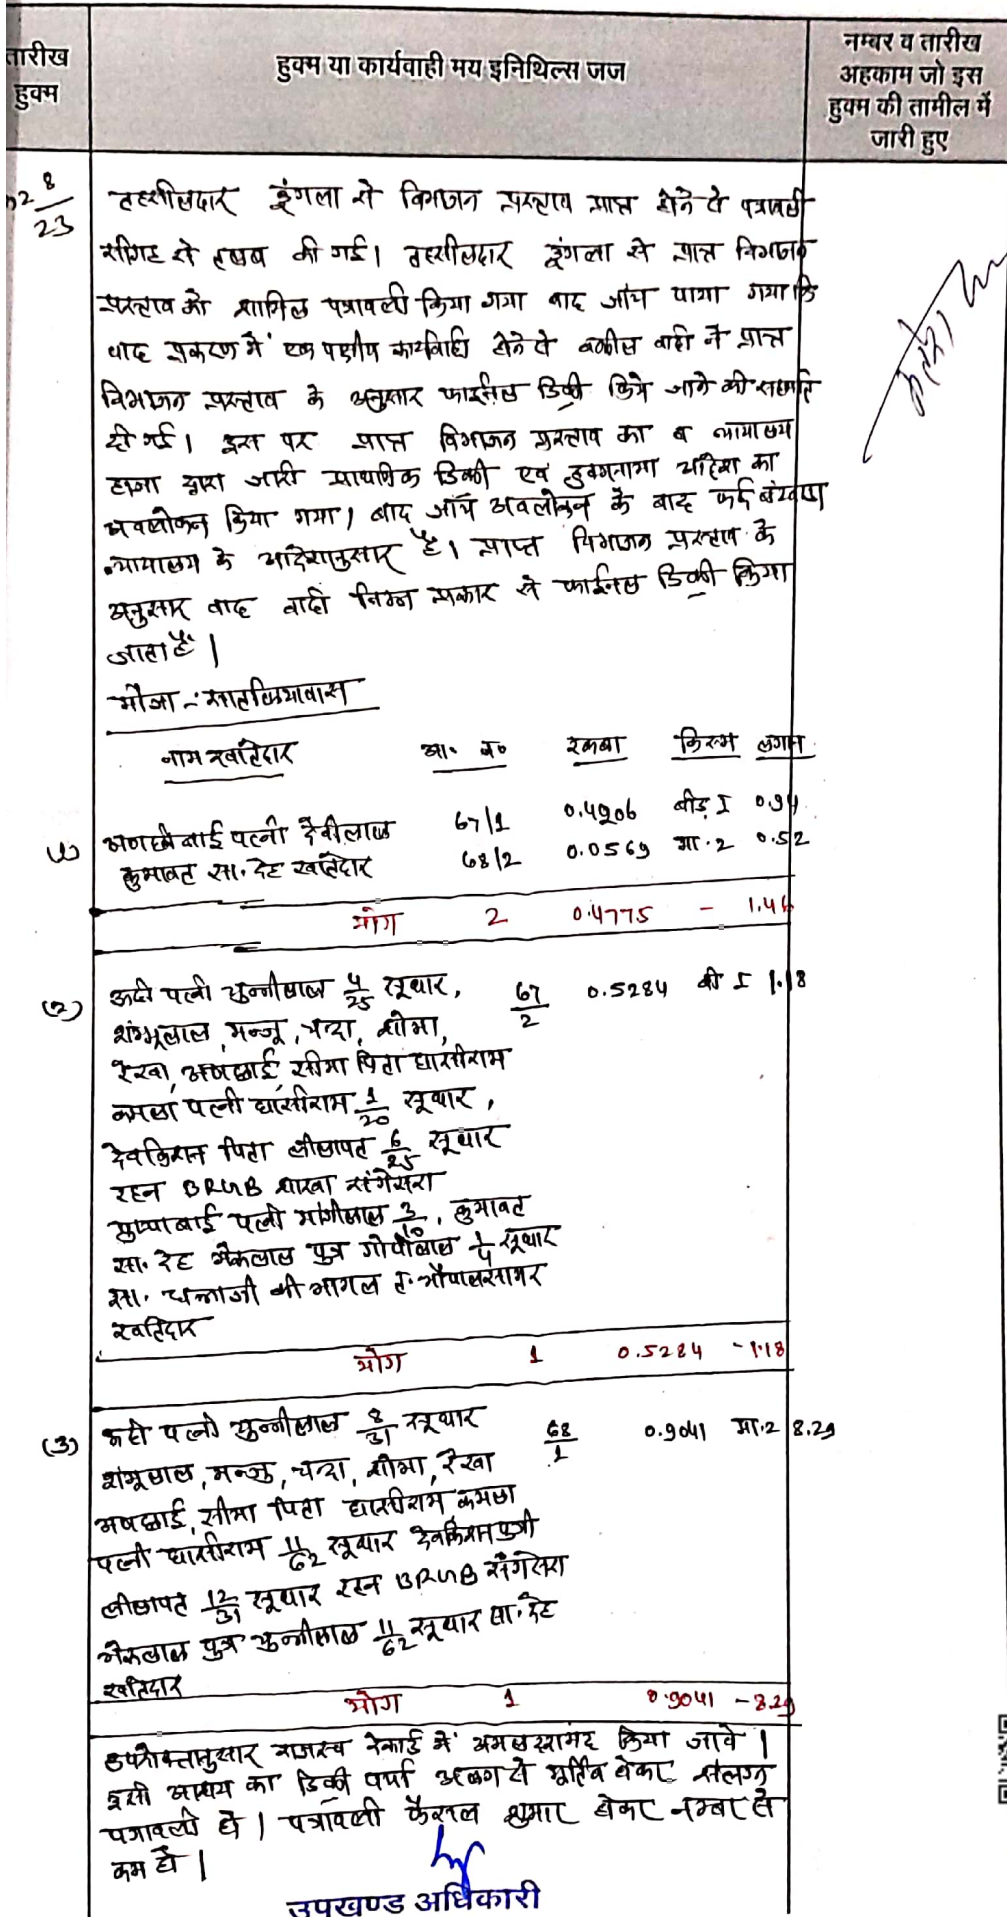 तारीख
हुक्म
हुक्म या कार्यवाही मय इनिथिल्स जज
नम्बर व तारीख
अहकाम जो इस
हुक्म की तामील में
जारी हुए
2 8/23
तहसीलदार डूंगला से विभाजन प्रस्ताव प्राप्त होने से पत्रावली
सीगह से तलब की गई। तहसीलदार डूंगला से प्राप्त विभाजन
प्रस्ताव को शामिल पत्रावली किया गया बाद जांच पाया गया कि
वाद प्रकरण में एक पक्षीय कार्यवाही होने से वकील वादी ने प्राप्त
विभाजन प्रस्ताव के अनुसार फाईनल डिक्री किये जाने की सहमति
दी गई। इस पर प्राप्त विभाजन प्रस्ताव का व न्यायालय
हाजा द्वारा जारी प्राथमिक डिक्री एवं हुक्मनामा आदेश का
अवलोकन किया गया। बाद जांच अवलोकन के बाद
न्यायालय के आदेशानुसार है। प्राप्त विभाजन प्रस्ताव के
अनुसार वाद वादी निम्न प्रकार से फाईनल डिक्री किया
जाता है।
मौजा :- सातकियावास
नाम खातेदार आ. न. रकबा किस्म लगान
(1) अणछीबाई पत्नी देवीलाल 67/1 0.4206 बीड़ I 0.94
कुमावत सा. देह खातेदार 68/2 0.0569 मा.2 0.52
योग 2 0.4775 - 1.46
(2) ऊदी पत्नी चुन्नीलाल 4/25 सूथार, 67/2 0.5284 बी I 1.18
शंम्भूलाल, मन्जू, चन्दा, शोभा,
रेखा, अणछाई, सीमा पिता घासीराम
कमला पत्नी घासीराम 1/20 सूथार,
देवकिशन पिता लीलापत 6/25 सूथार
रहन BRGB शाखा संगेसरा
पुष्पाबाई पत्नी मांगीलाल 3/10, कुमावत
सा. देह भैरूलाल पुत्र गोपीलाल 1/4 सूथार
सा. चत्राजी की भागल त. भोपालसागर
खातेदार
योग 1 0.5284 - 1.18
(3) ऊदी पत्नी चुन्नीलाल 8/31 सूथार 68/1 0.9041 मा.2 8.29
शंभूलाल, मन्जू, चन्दा, शोभा, रेखा
अणछाई, सीमा पिता घासीराम, कमला
पत्नी घासीराम 11/62 सूथार देवकिशन पुत्री
लीलापत 12/31 सूथार रहन BRGB संगेसरा
भैरूलाल पुत्र चुन्नीलाल 11/62 सूथार सा. देह
खातेदार
योग 1 0.9041 - 8.29
उपरोक्तानुसार राजस्व रेकार्ड में अमल दरामद किया जावे।
इसी आशय का डिक्री पर्चा अलग से मुर्तिब होकर संलग्न
पत्रावली हो। पत्रावली फैसल शुमार होकर नम्बर से
कम हो।
उपखण्ड अधिकारी